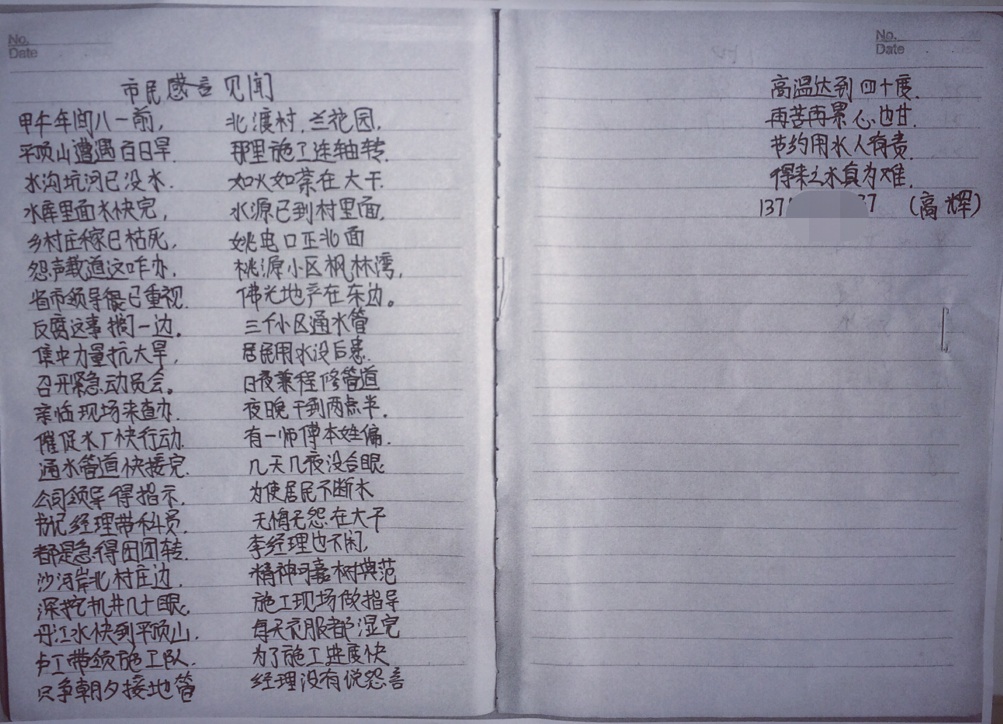 No.
Date
市民感言见闻
甲午年间八一前,
平顶山遭遇百日旱.
水沟坑河已没水.
水库里面水快完,
乡村庄稼已枯死,
怨声载道这咋办.
省市领导很已重视.
反腐这事搁一边.
集中力量抗大旱,
召开紧急动员会。
亲临现场来查办.
催促水厂快行动.
通水管道快接完.
公司领导得指示.
书记经理带科员.
都是急得团团转.
沙河岸北村庄边.
深挖机井几十眼.
丹江水快到平顶山.
卢工带领施工队.
只争朝夕接地管
北渡村,兰花园,
那里施工连轴转.
如火如荼在大干.
水源已到村里面.
姚电口正北面
桃源小区枫林湾,
佛光地产在东边。
三千小区通水管
居民用水没后患.
日夜兼程修管道
夜晚干到两点半.
有一师傅本姓偏.
几天几夜没合眼
为使居民不断水
无悔无怨在大干
李经理也不闲,
精神可嘉树典范
施工现场做指导
每天衣服都湿完
为了施工进度快
经理没有说怨言
No.
Date
高温达到四十度.
再苦再累心也甘.
节约用水人有责.
得来之水真为难.
137 37 (高辉)